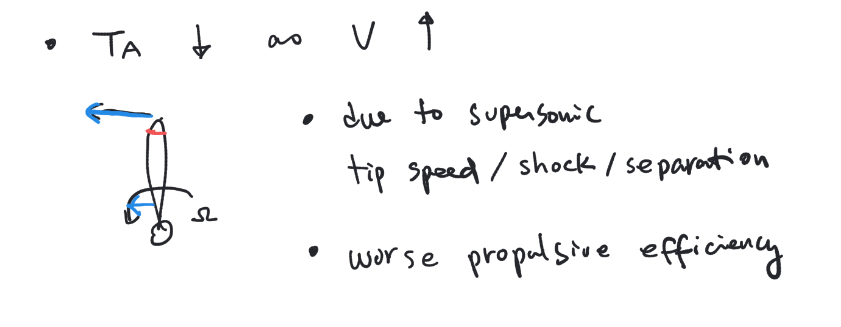 • TA ↓ as V ↑
• due to supersonic
tip speed / shock / separation
Ω
• worse propulsive efficiency